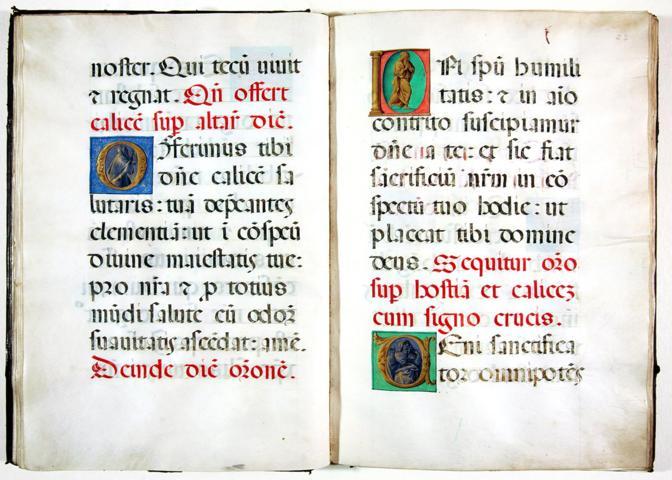 noster. Qui tecū uiuit
⁊ regnat. Qn̄ offert
calicē sup altar̄ dīē.
Offerimus tibi
dn̄e calicē sa
lutaris: tuā dep̄cantes
clementiā: ut ī cōspcū
diuine maiestatis tue:
pro nr̄a ⁊ ꝓ totius
mūdi salute cū odor̄
suauitatis ascēdat: amē.
Deinde dīē oronē.
IN spū humili
tatis: ⁊ in aīo
contrito suscipiamur
dn̄e a te: et sic fiat
sacrificiū nr̄m in cō
spectu tuo hodie: ut
placeat tibi domine
deus. Sequitur orō
sup hostiā et calicez
cum signo crucis.
Ueni sanctifica
tor omnipotēs